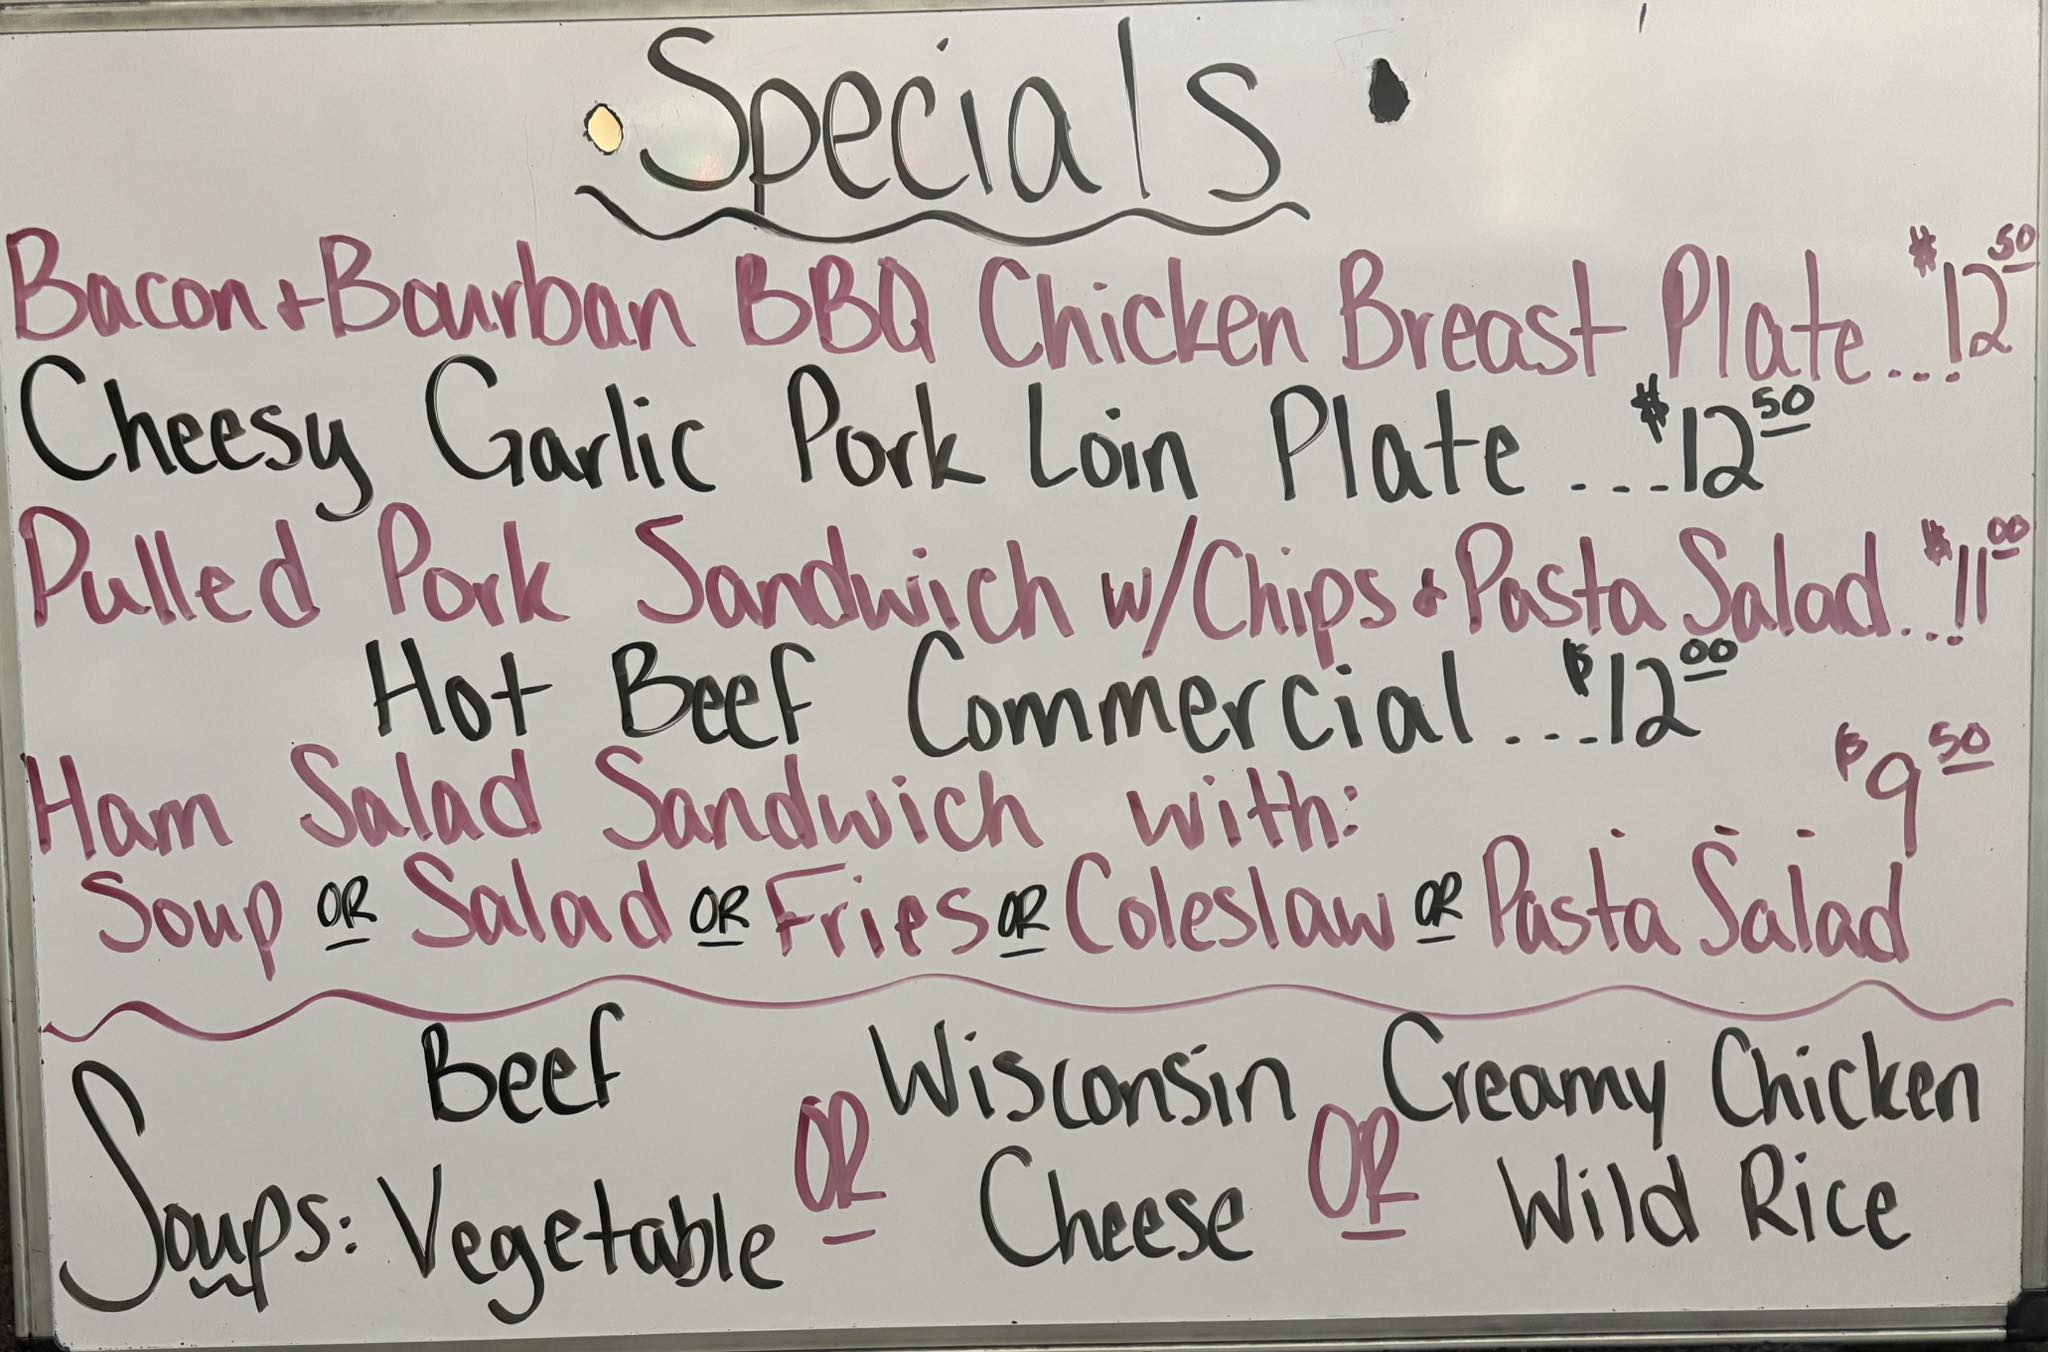 Specials
Bacon + Bourban BBQ Chicken Breast Plate...$12.50
Cheesy Garlic Pork Loin Plate ....$12.50
Pulled Pork Sandwich w/Chips + Pasta Salad...$11.00
Hot Beef Commercial ....$12.00
Ham Salad Sandwich with: ... $9.50
Soup OR Salad OR Fries OR Coleslaw OR Pasta Salad
Soups: Beef Vegetable OR Wisconsin Cheese OR Creamy Chicken Wild Rice